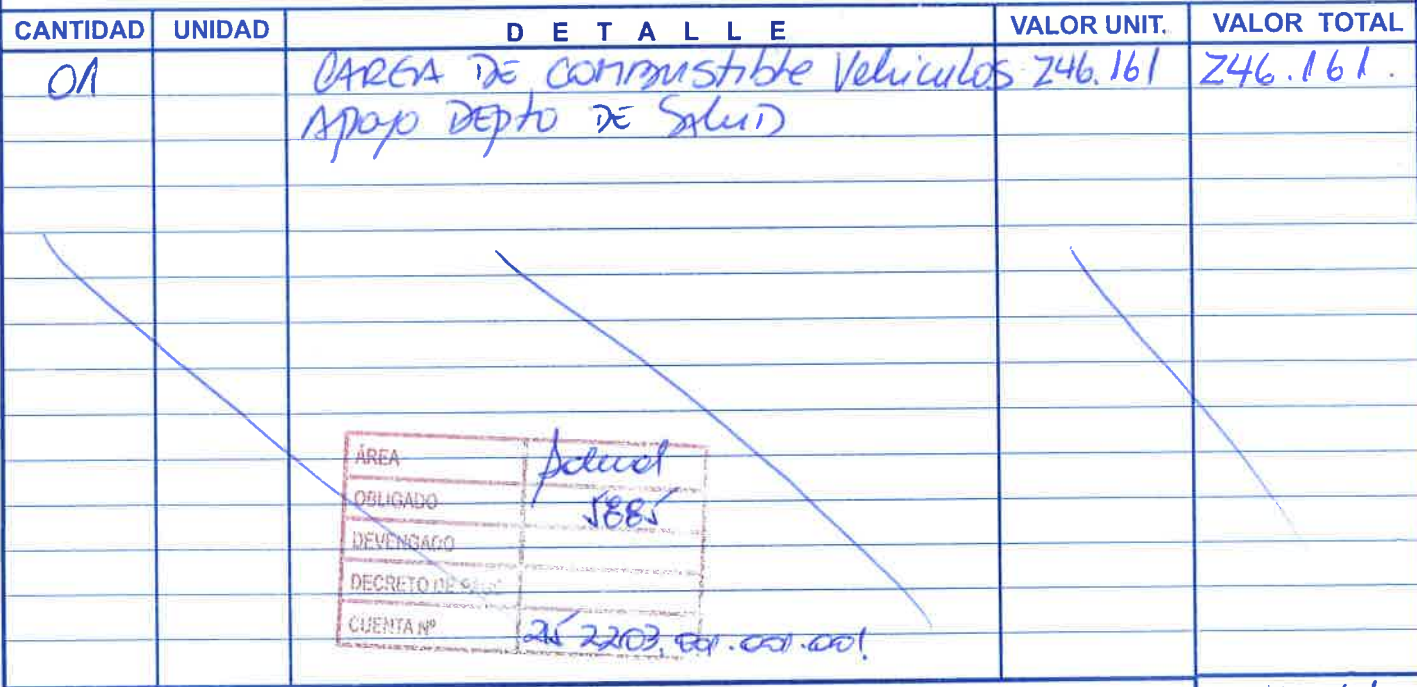 CANTIDAD UNIDAD DETALLE VALOR UNIT. VALOR TOTAL
01 CARGA DE COMBUSTIBLE Vehiculos 246.161 246.161.
APOYO DEPTO DE SALUD
ÁREA Salud
OBLIGADO 5885
DEVENGADO
DECRETO DE PAGO
CUENTA Nº 215 2203.001.001.001